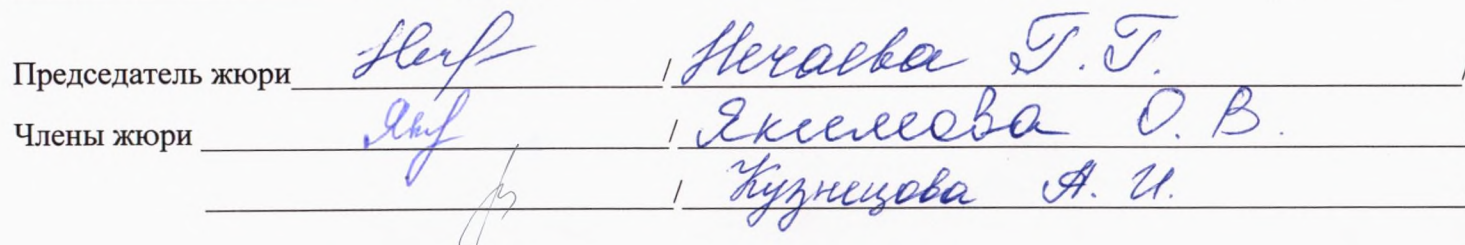 Председатель жюри / Нечаева Г. Г. /
Члены жюри / Якимова О. В.
/ Кузнецова А. И.